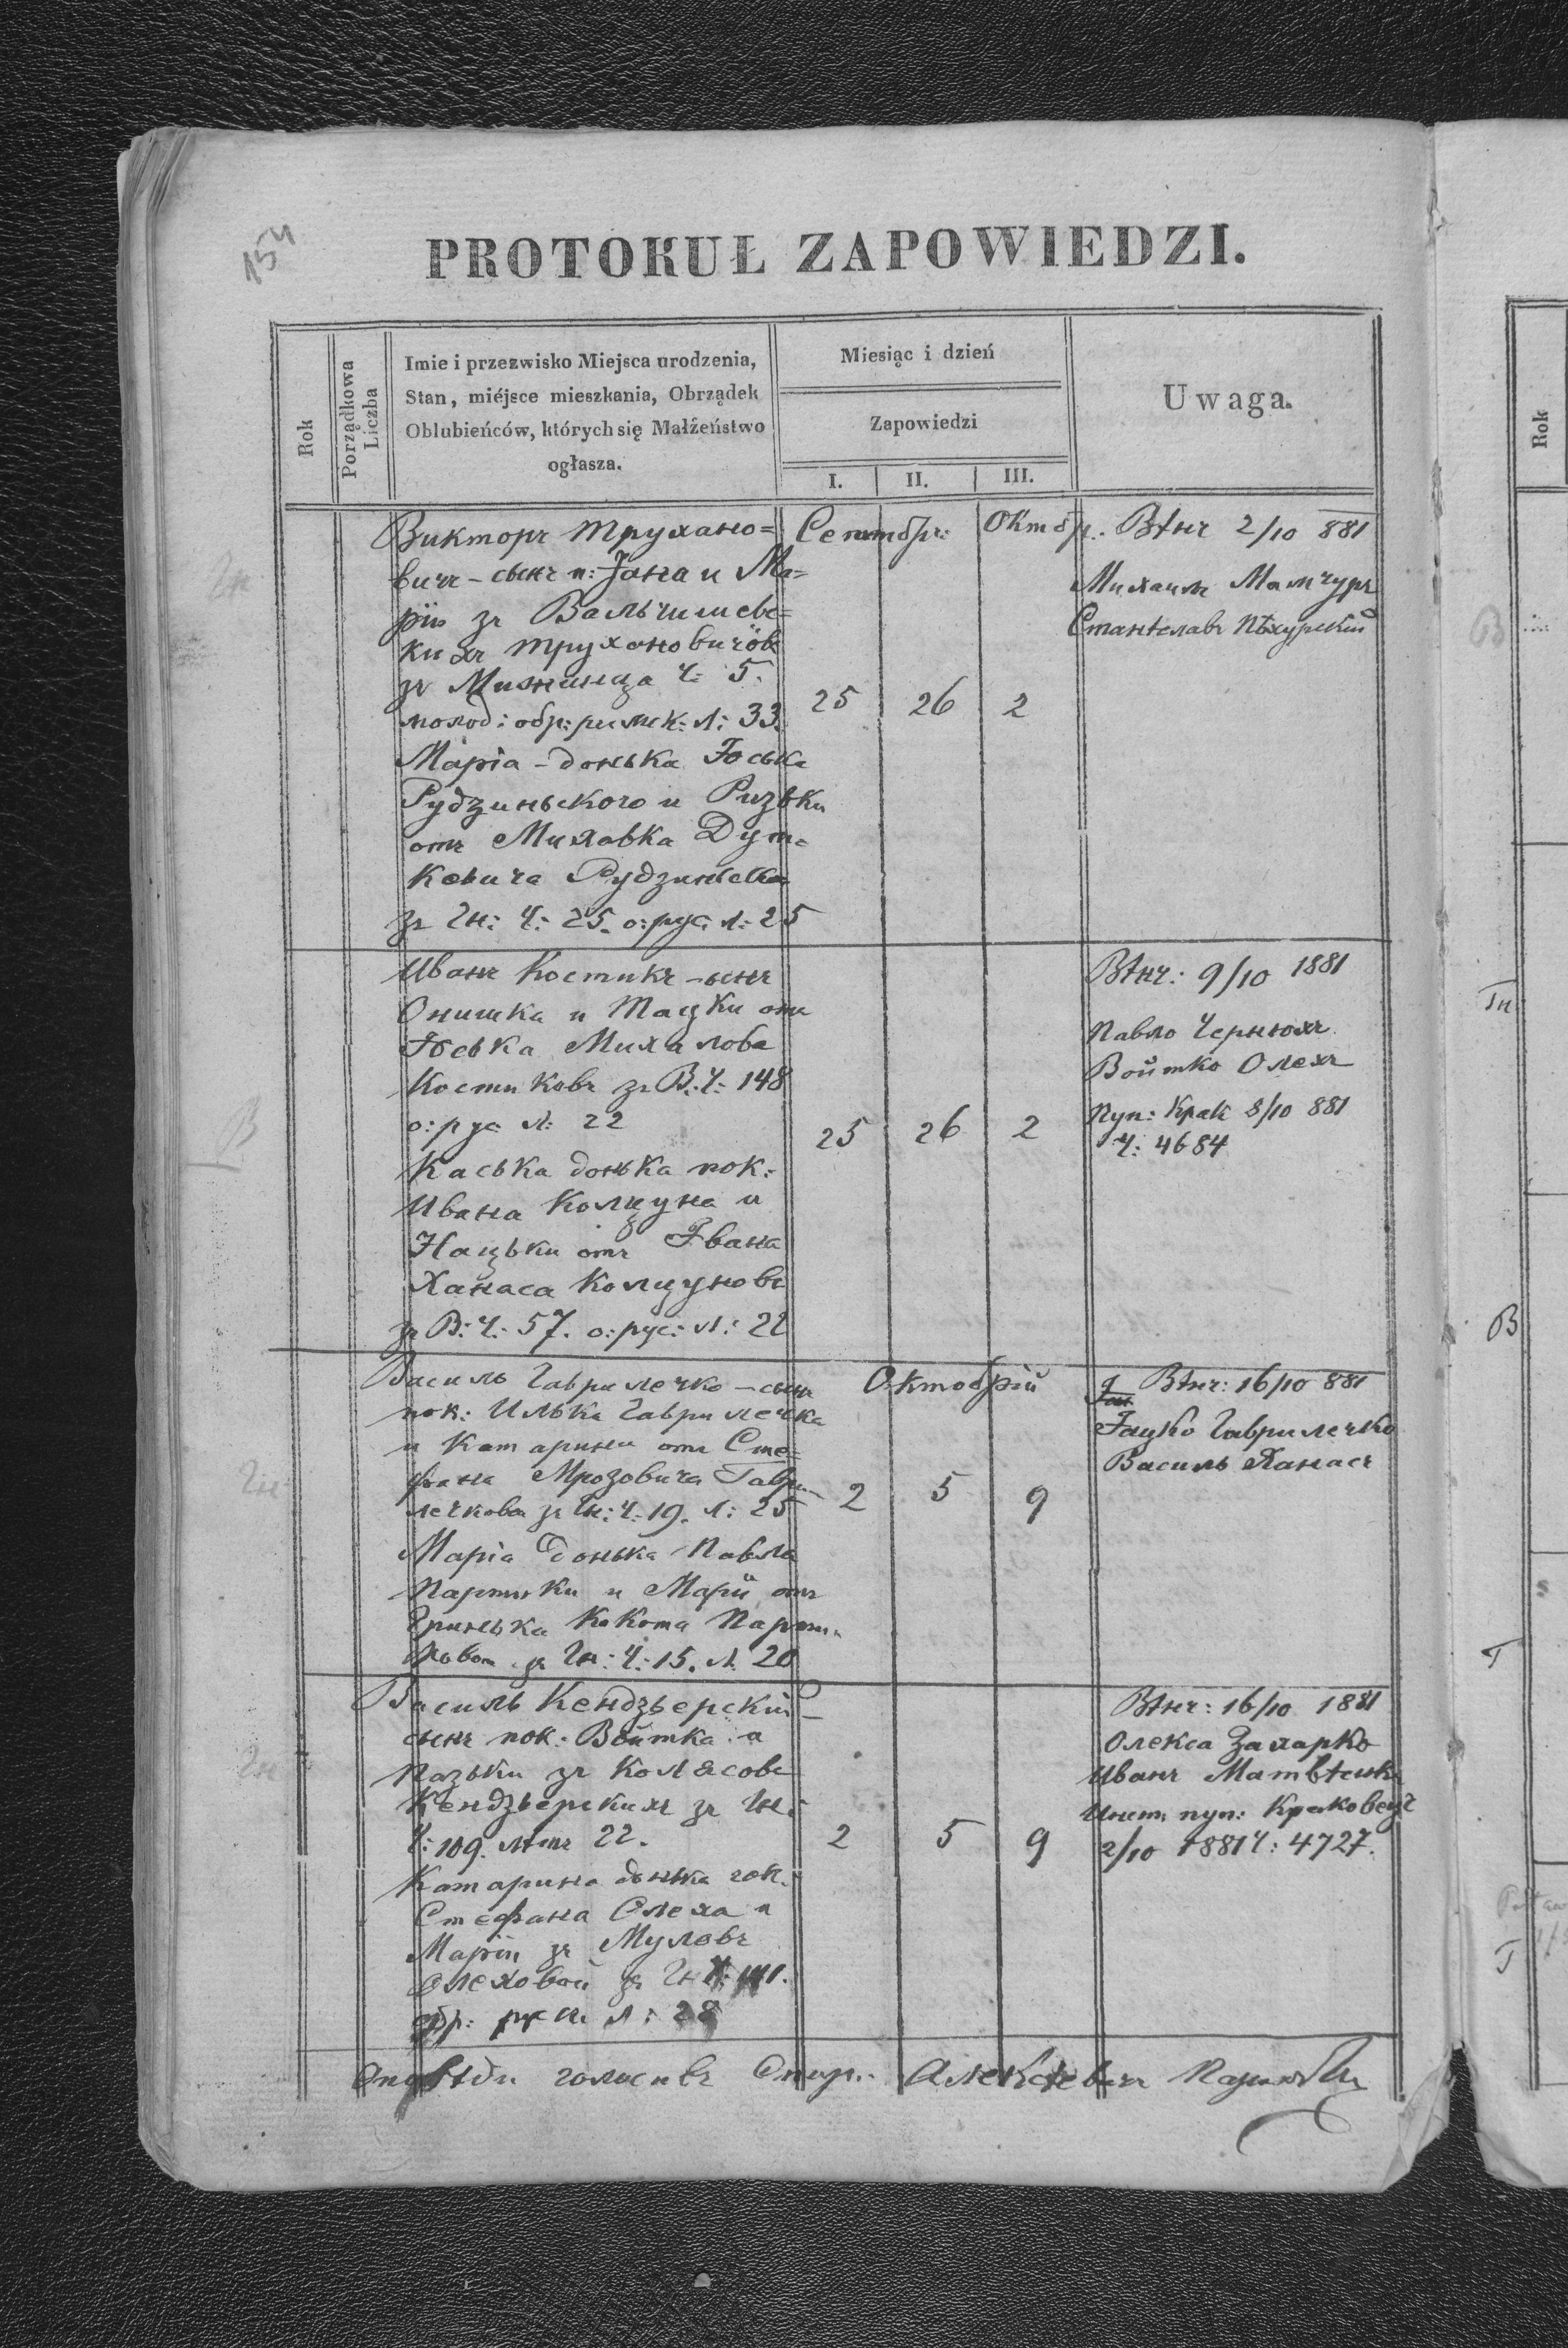 154
PROTOKUŁ ZAPOWIEDZI.
Rok
Porządkowa Liczba
Imie i przezwisko Miejsca urodzenia,
Stan, miéjsce mieszkania, Obrządek
Oblubieńców, których się Małżeństwo
ogłasza.
Miesiąc i dzień
Zapowiedzi
I. II. III.
Uwaga.
Викторъ Трухано=
вичъ - сынъ п: Jана и Ма=
ріи зъ
кихъ Трухановичôвъ
зъ ч: 5.
молод: обр: римск: л: 33.
Марія - донька Юська
Рудзиньского и Рузьки
отъ Михавка Дут=
кевича Рудзиньска
зъ Гн: ч: 25. о: рус: л: 25
Септембръ: Октобр.
25 26 2
Вѣнч 2/10 881
Михаилъ Мамчуръ
Гн
Иванъ Костикъ - сынъ
Онишка и Тацьки отъ
Юська Михалова
Костиковъ зъ В. ч: 148
о: рус л: 22
Каська донька пок:
Ивана Колцуна и
Нацьки отъ Ивана
Ханаса Колцуновъ
зъ В: ч: 57. о: рус: л: 22
25 26 2
Вѣнч: 9/10 1881
Павло Чернюхъ
Войтко Олехъ
Пуп: Крак 8/10 881
Ч: 4684
В
Василь Гаврилечко - сынъ
пок: Илька Гаврилечка
и Катарини отъ Сте=
фана Мрозовича Гаври-
лечкова зъ Гн: ч: 19. л: 25
Марія донька Павла
Партики и Маріи отъ
Гринька Кокота
зъ Гн: ч: 15. л. 20
Октобрій
2 5 9
Вѣнч: 16/10 881
Гацко Гаврилечко
Василь Ханасъ
Гн
Василь Кендзьерскій -
сынъ пок: Войтка и
Пазьки зъ Колясовъ
Кендзьерскихъ зъ Гн:
ч: 109. лѣтъ 22.
Катарина донька пок.
Стефана Олеха и
Маріи зъ Муловъ
Олеховой зъ Гн
обр: л: 28
2 5 9
Вѣнч: 16/10 1881
Олекса Захарко
Иванъ
пуп: Краковецъ
2/10 1881 ч: 4727.
Гн
Rok
В
Гн
В
Т
Т